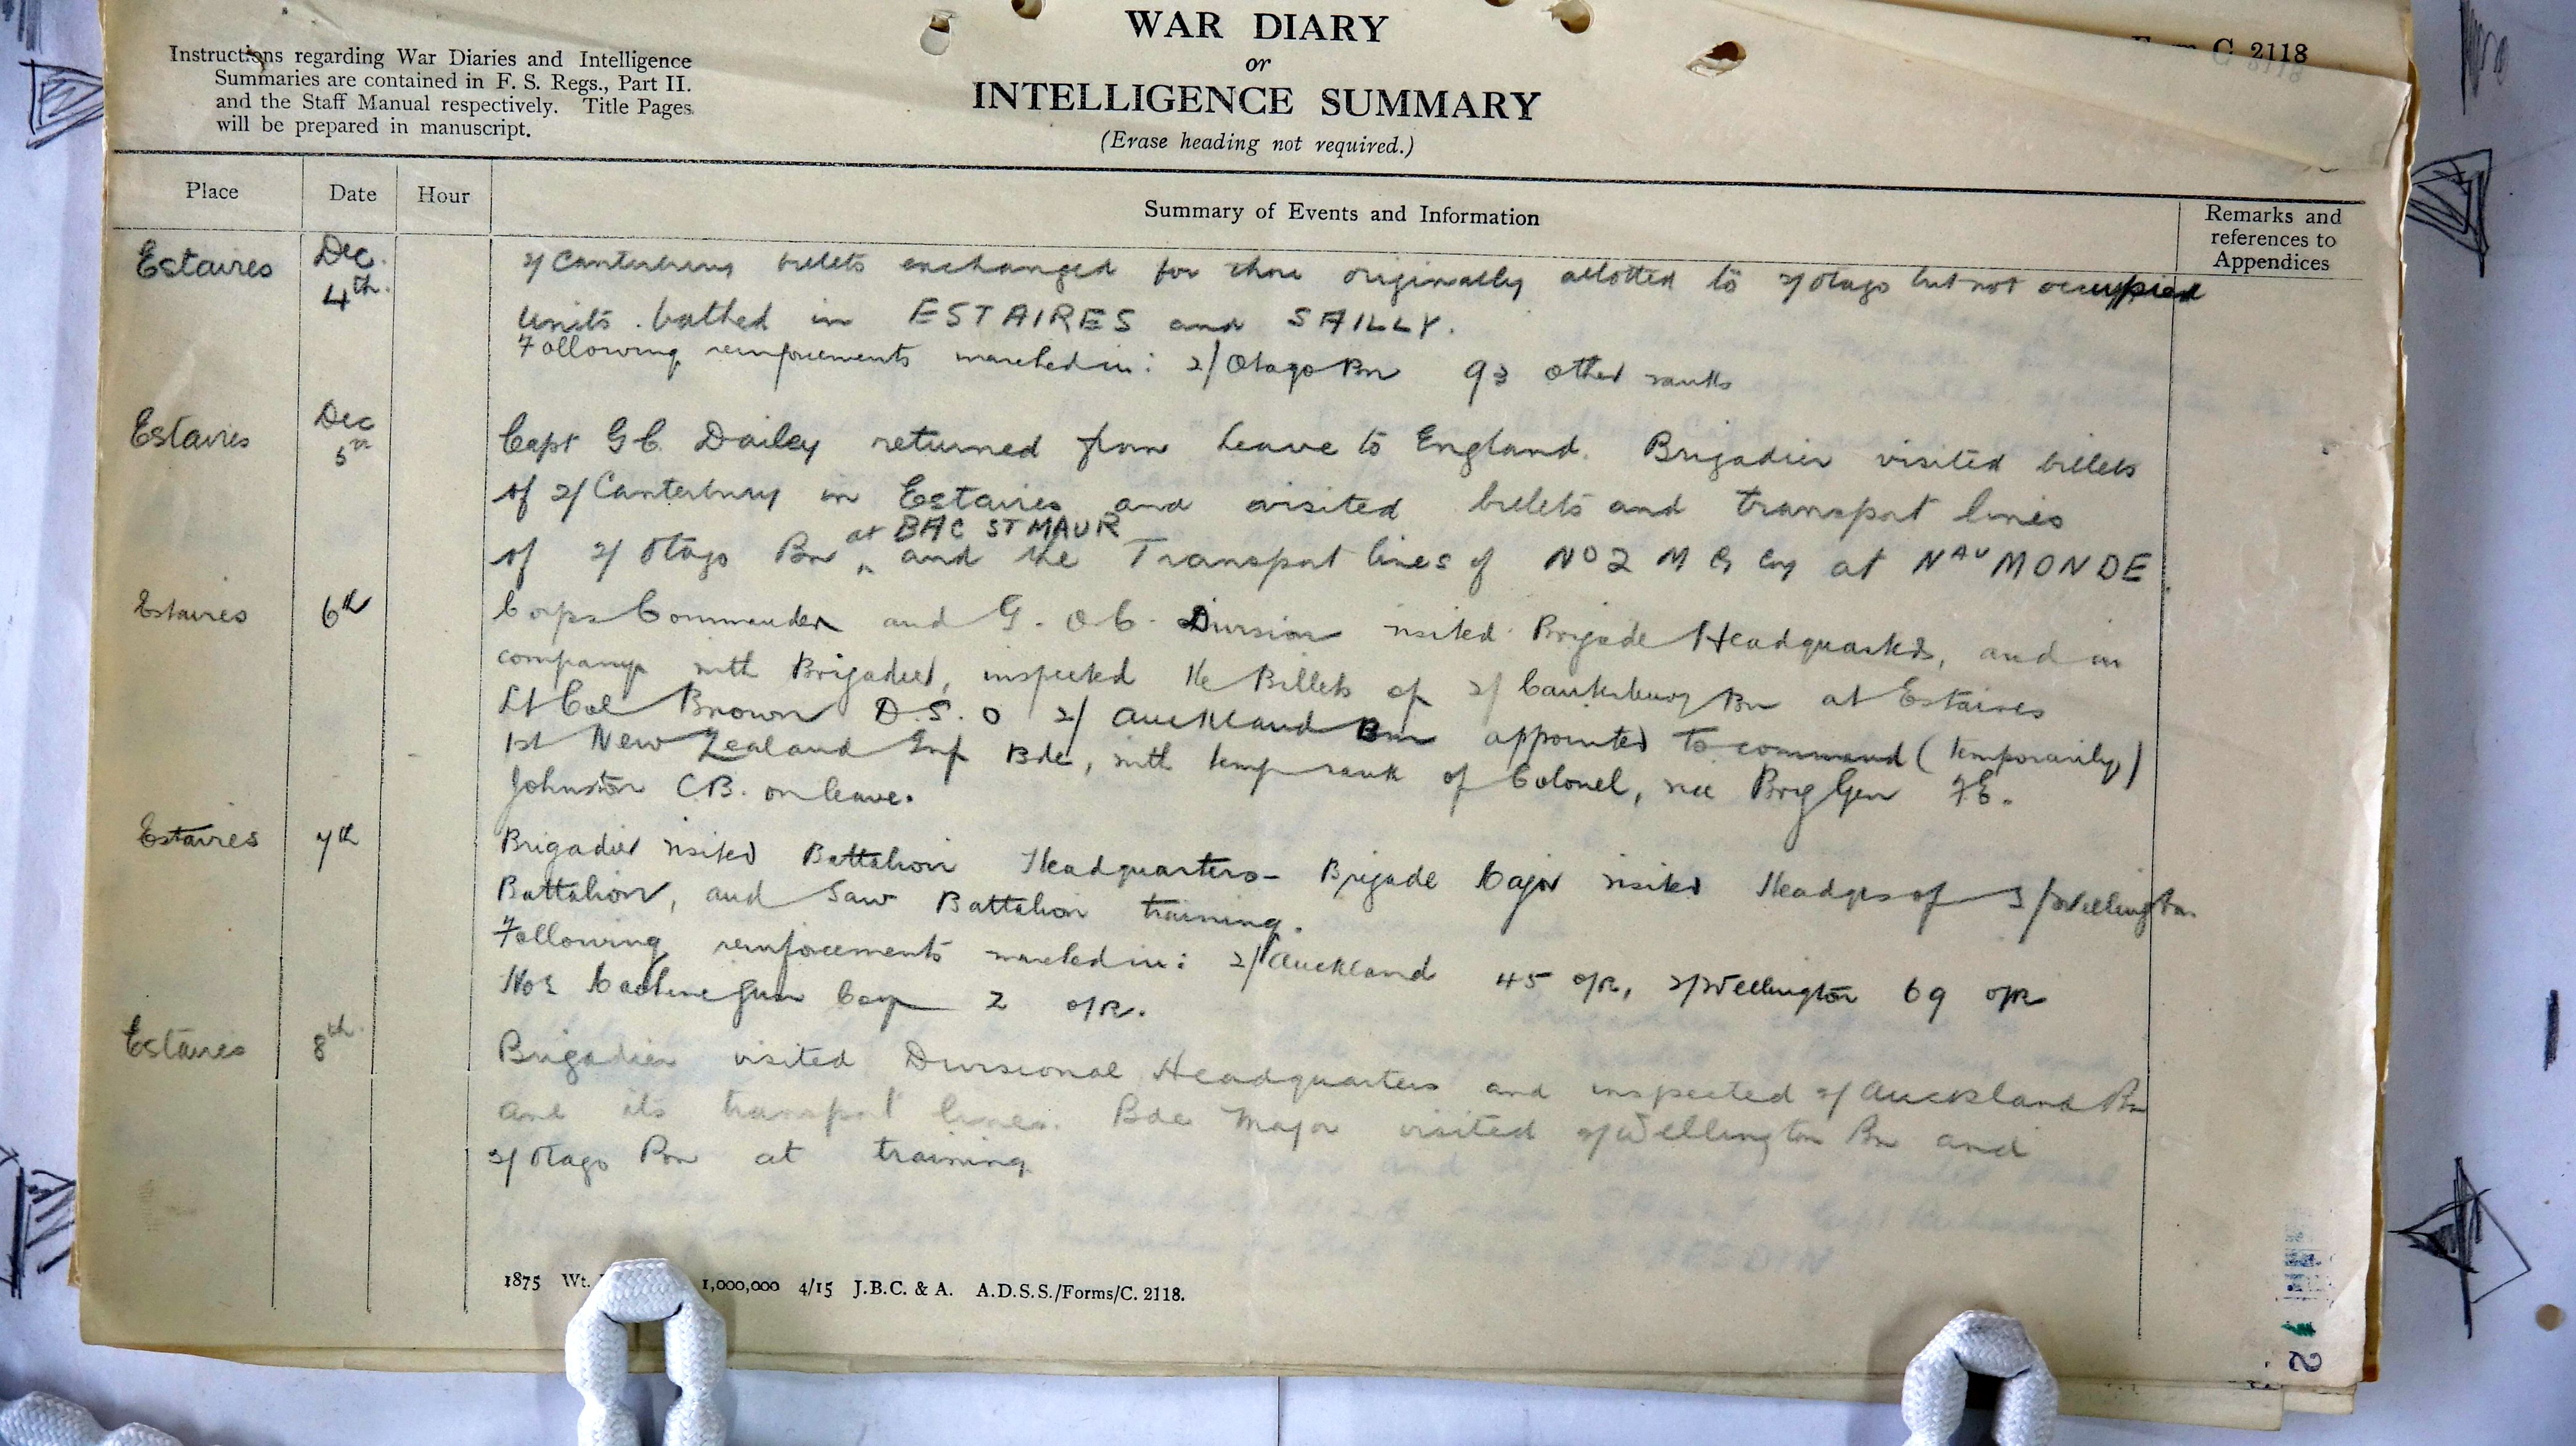 Instructions regarding War Diaries and Intelligence
Summaries are contained in F. S. Regs., Part II.
and the Staff Manual respectively. Title Pages
will be prepared in manuscript.
WAR DIARY
or
INTELLIGENCE SUMMARY
(Erase heading not required.)
Form C 2118
Place Date Hour Summary of Events and Information Remarks and references to Appendices
Estaires Dec. 4th. 2/Canterbury billets exchanged for those originally allotted to 2/Otago but not occupied
Units bathed in ESTAIRES and SAILLY.
Following reinforcements marched in: 2/Otago Bn 93 other ranks
Estaires Dec 5th Capt G.C. Dailey returned from leave to England. Brigadier visited billets
of 2/Canterbury in Estaires and visited billets and transport lines
of 2/Otago Bn at BAC ST MAUR and the Transport lines of No 2 M G Coy at NAU MONDE
Estaires 6th Corps Commander and G.O.C. Division visited Brigade Headquarters, and in
company with Brigadier, inspected the Billets of 2/Canterbury Bn at Estaires
Lt Col Brown D.S.O 2/Auckland Bn appointed to command (temporarily)
1st New Zealand Inf Bde, with temp rank of Colonel, vice Brig Gen F.E.
Johnston C.B. on leave.
Estaires 7th Brigadier visited Battalion Headquarters - Brigade Major visited Headqrs of 3/Wellington
Battalion, and saw Battalion training.
Following reinforcements marched in: 2/Auckland 45 o/R, 2/Wellington 69 o/R
No 2 Machine Gun Coy 2 o/R.
Estaires 8th. Brigadier visited Divisional Headquarters and inspected 2/Auckland Bn
and its transport lines. Bde Major visited 2/Wellington Bn and
2/Otago Bn at training
1875 Wt. 1,000,000 4/15 J.B.C. & A. A.D.S.S./Forms/C. 2118.
2